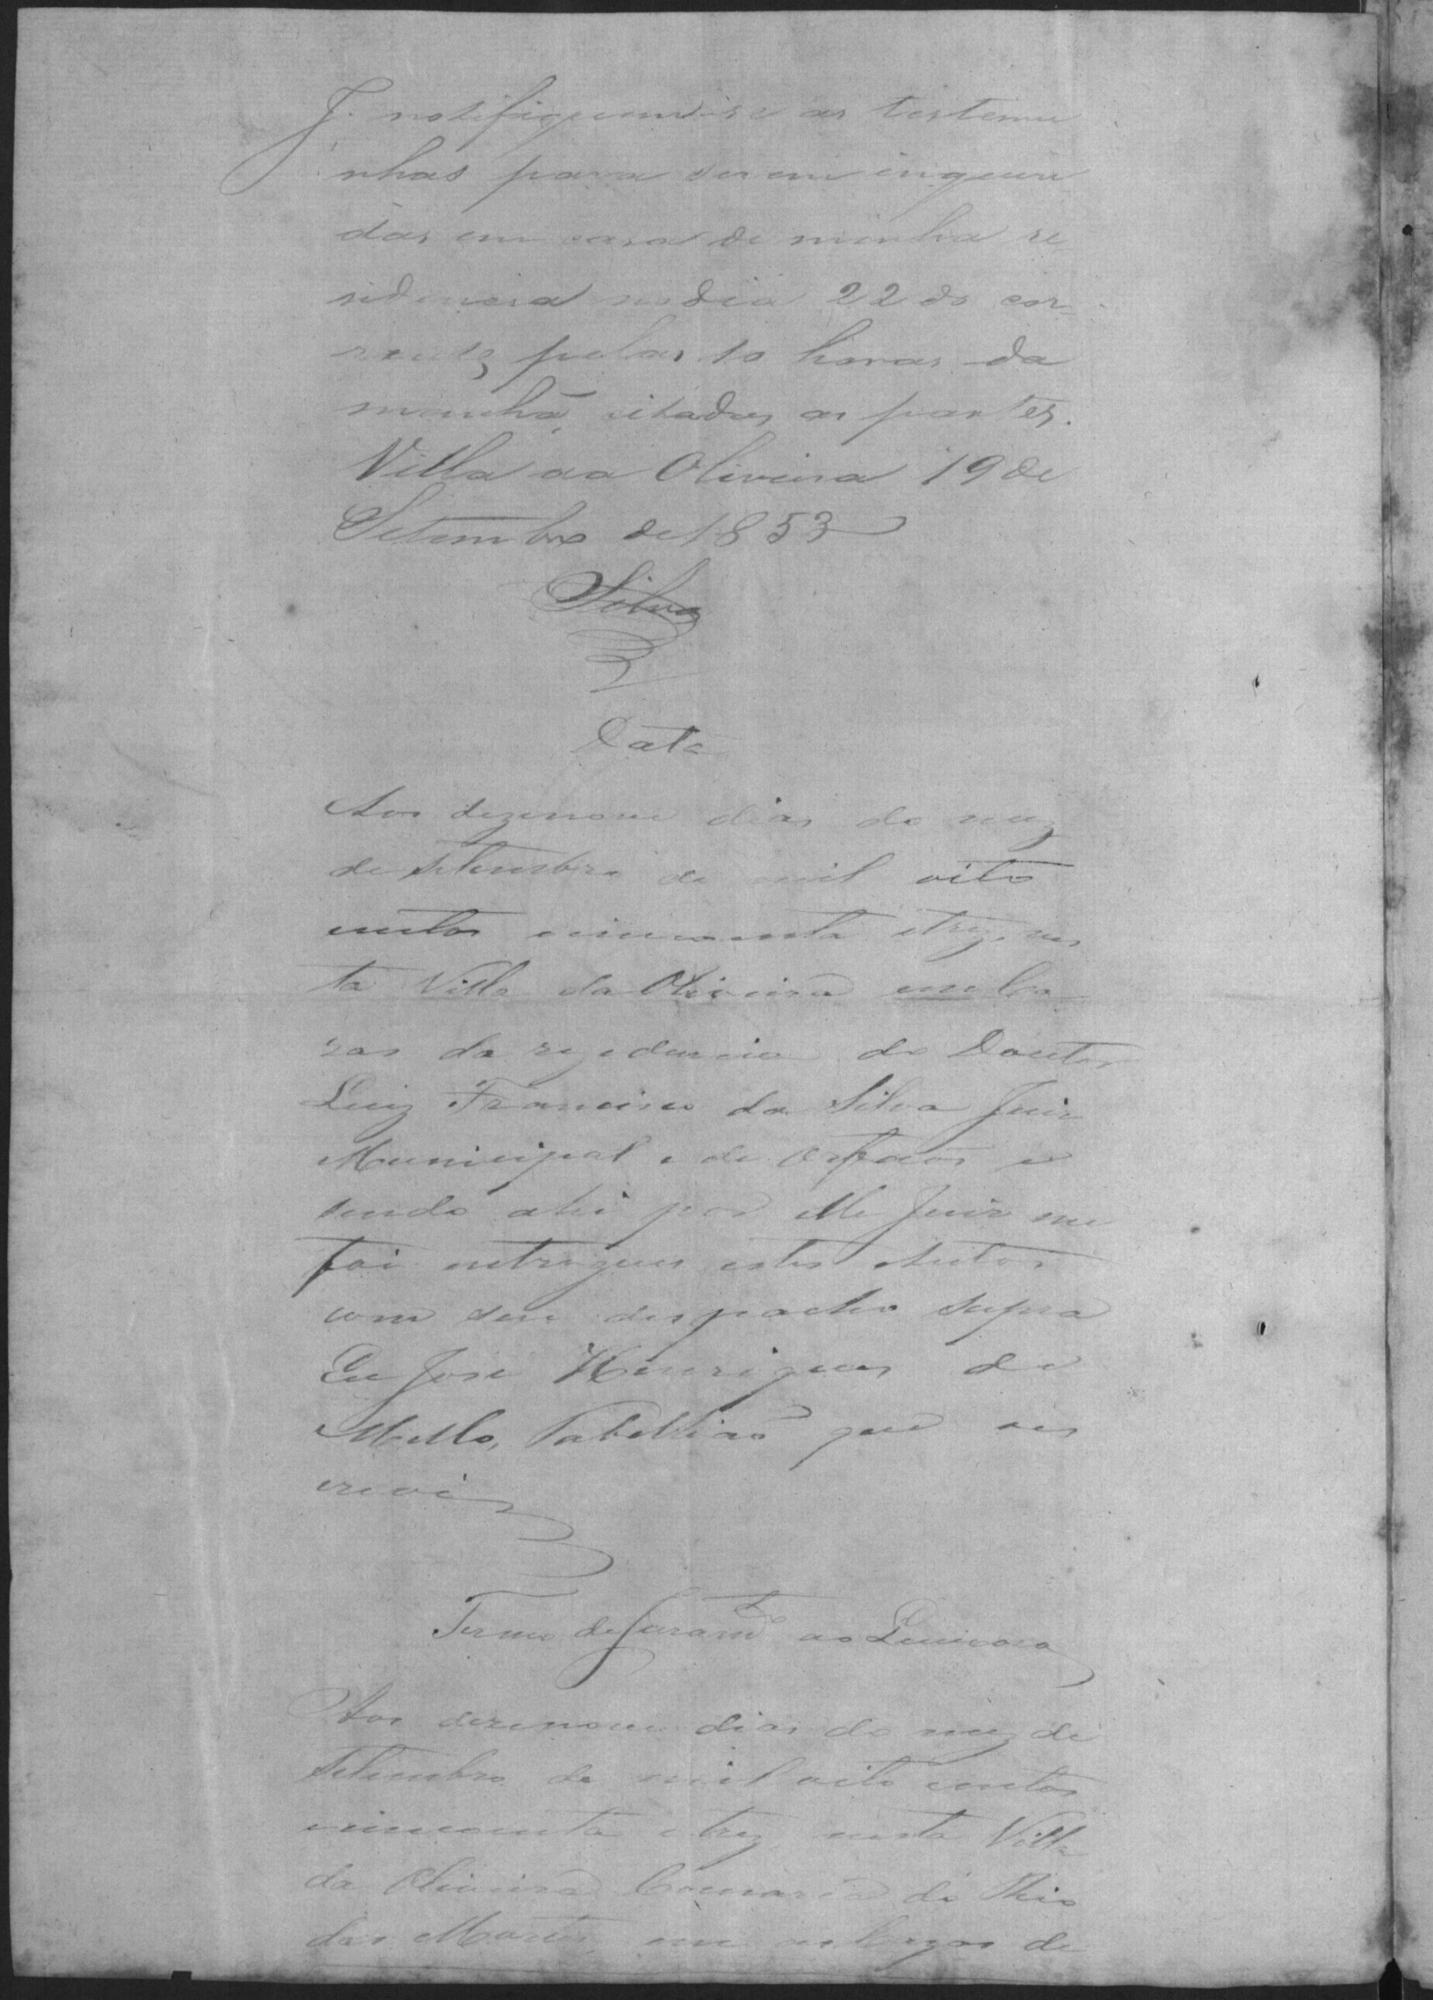 J. notifiquem-se as testemu
nhas para serem inquiri
das em casa de minha re
sidencia no dia 22 do cor-
rente, pelas 10 horas da
manhã, citadas as partes.
Villa da Oliveira 19 de
Setembro de 1853
Silva
Data
Aos dezenove dias do mez
de Setembro de mil oito
centos cincoenta e trez, nes
ta Villa da Oliveira em ca
zas da rezedencia do Doutor
Luiz Francisco da Silva Juiz
Municipal e de Orfaos e
sendo ahi por elle Juiz me
foi entregue estes Autos
com seu despacho supra
Eu José Henriques de
Mello, Tabelliaõ que es
crevi
Termo de Juramto ao
Aos dezenove dias do mez de
Setembro de mil oito centos
cincoenta e trez nesta Villa
da Oliveira Comarca do Rio
das Mortes, em cazas de